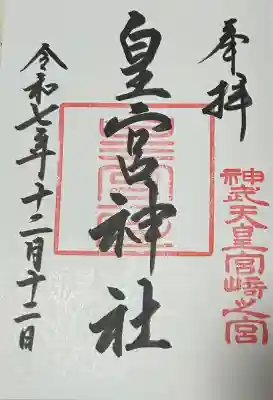 奉拝
神武天皇宮崎之宮
皇宮神社
令和七年十二月十二日